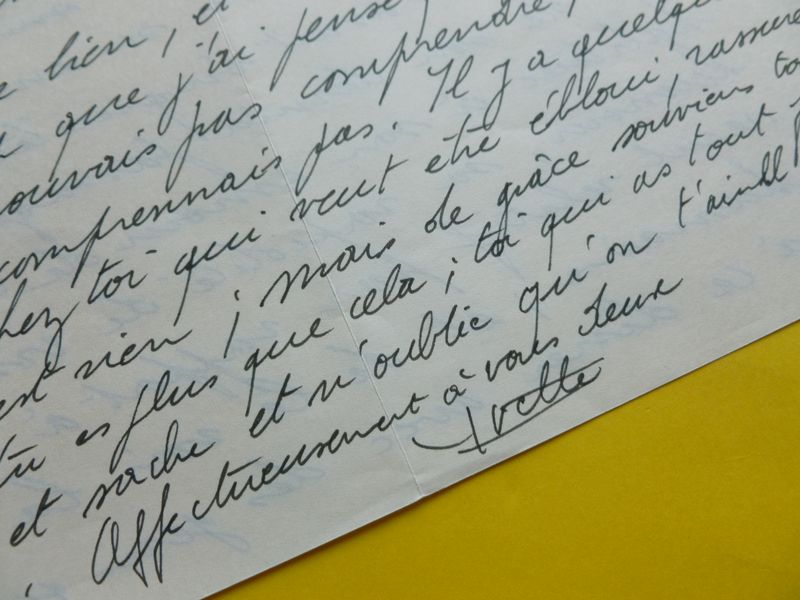 bien, et
que j'ai pensé
pouvais pas comprendre,
comprennais pas. Il y a quelque
chez toi qui veut être ébloui, rassuré
est rien ; mais de grâce souviens to
tu es plus que cela ; toi qui as tout
et sache et n'oublie qu'on t'aime
Affectueusement à vous deux
Yvette